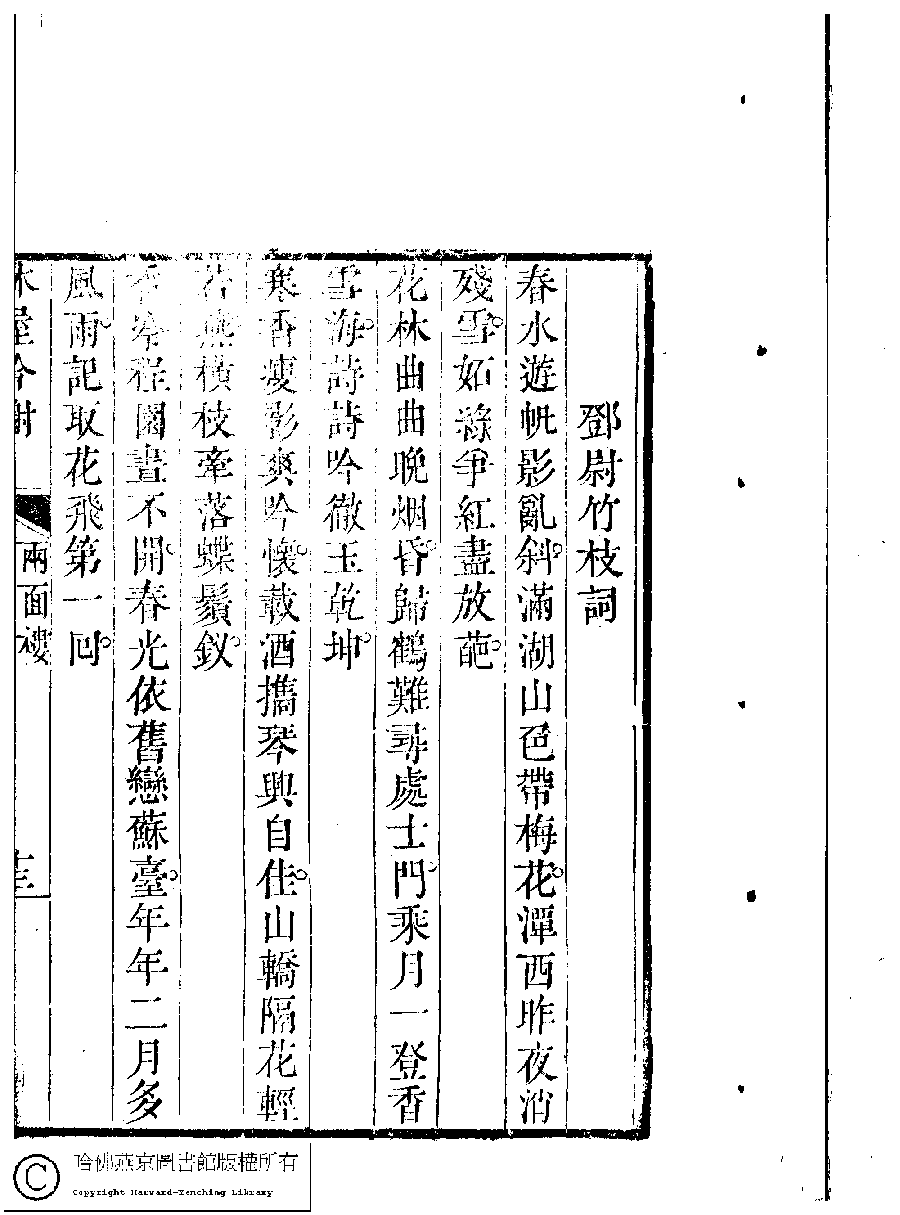 鄧尉竹枝詞
春水遊帆影亂斜。滿湖山色帶梅花。潭西昨夜消
殘雪。妬綠爭紅盡放葩。
花林曲曲晚烟昏。歸鶴難尋處士門。乘月一登香
雪海。詩詩吟徹玉乾坤。
寒香瘦影爽吟懷。載酒攜琴興自佳。山轎隔花輕
若燕。橫枝牽落蝶鬚釵。
峯程園晝不開。春光依舊戀蘇臺。年年二月多
風雨。記取花飛第一回。
屋吟榭 兩面樓 十三
哈佛燕京圖書館版權所有
Copyright Harvard-Yenching Library